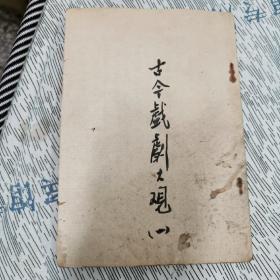 古今戲劇大觀